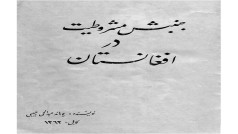 جنبش مشروطیت
در
افغانستان
نویسنده: پوهاند عبدالحی حبیبی
کابل، ۱۳۶۳